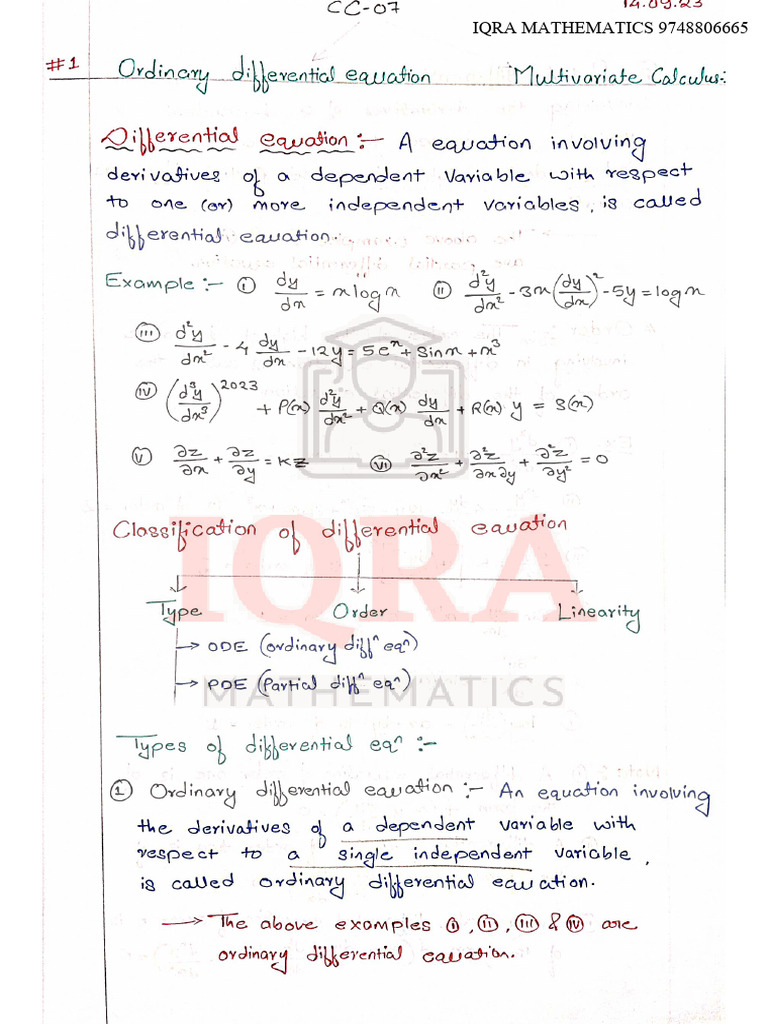 CC-07
14.09.23
IQRA MATHEMATICS 9748806665
#1 Ordinary differential equation Multivariate Calculus:
Differential equation:- A equation involving
derivatives of a dependent variable with respect
to one (or) more independent variables, is called
differential equation.
Example:- (i) dy/dx = x log x (ii) d²y/dx² - 3x(dy/dx)² - 5y = log x
(iii) d²y/dx² - 4 dy/dx - 12y = 5eˣ + Sinx + x³
(iv) (d³y/dx³)²⁰²³ + P(x) d²y/dx² + Q(x) dy/dx + R(x) y = S(x)
(v) ∂z/∂x + ∂z/∂y = Kz (vi) ∂²z/∂x² + ∂²z/∂x∂y + ∂²z/∂y² = 0
Classification of differential equation
IQRA
Type Order Linearity
→ ODE (ordinary diffⁿ eqⁿ)
→ PDE (Partial diffⁿ eqⁿ)
MATHEMATICS
Types of differential eqⁿ :-
① Ordinary differential equation :- An equation involving
the derivatives of a dependent variable with
respect to a single independent variable,
is called ordinary differential equation.
→ The above examples (i), (ii), (iii) & (iv) are
ordinary differential equation.